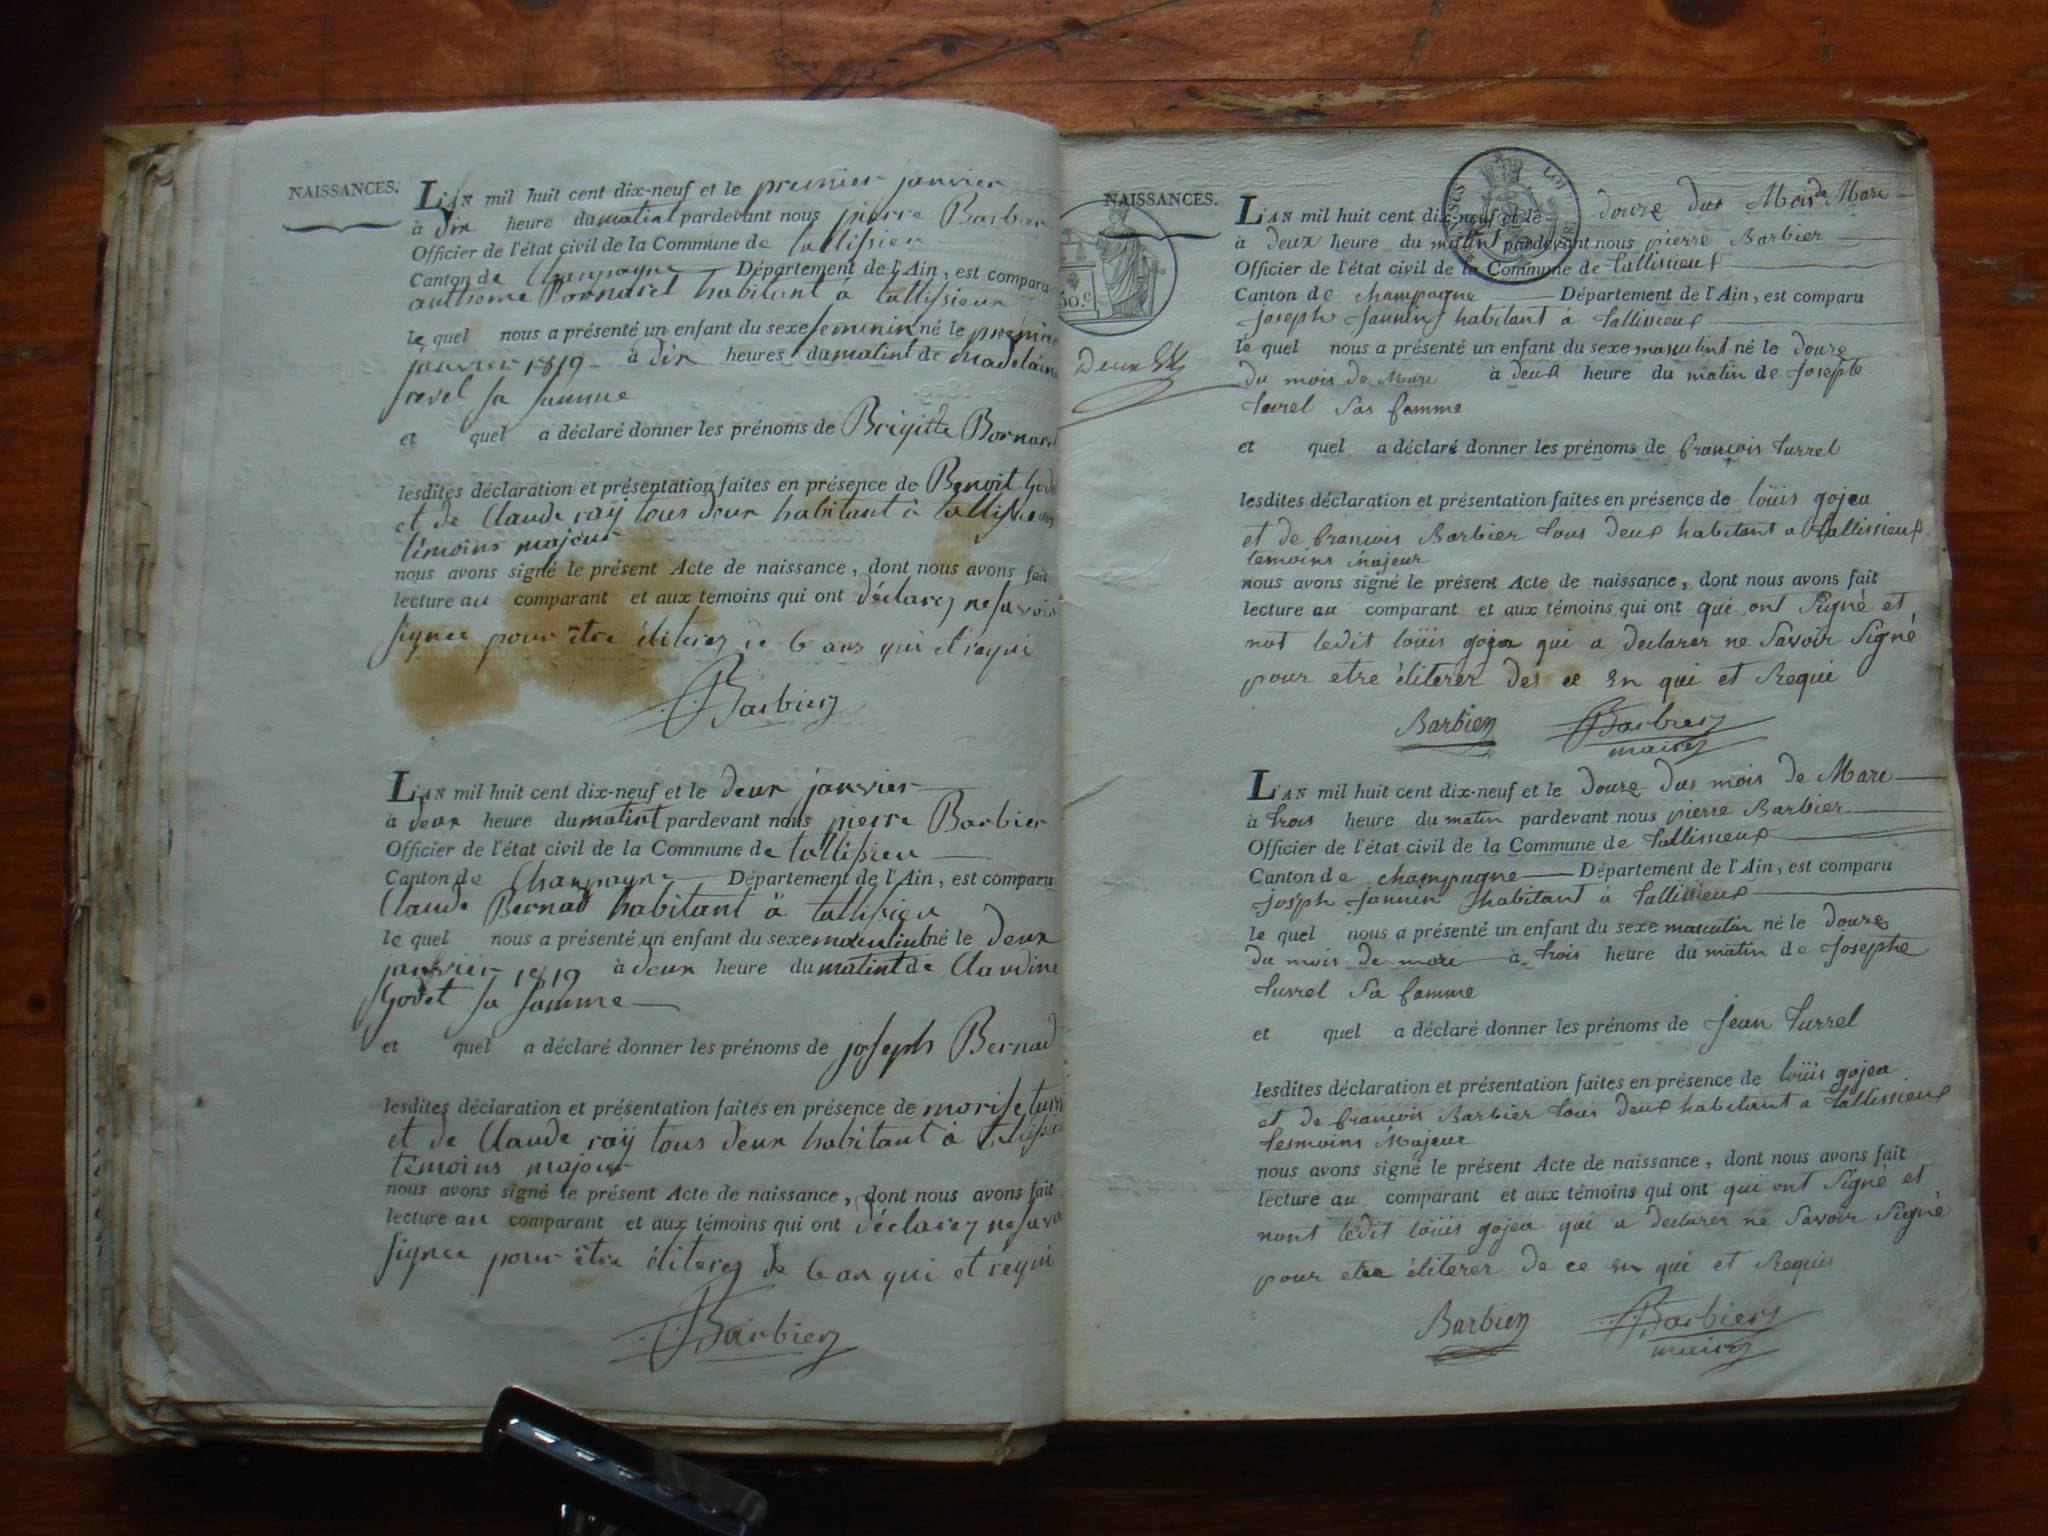 NAISSANCES.
L'AN mil huit cent dix-neuf et le premier janvier
à dix heure du matint pardevant nous pierre Barbier
Officier de l'état civil de la Commune de tallissieu
Canton de Champagne Département de l'Ain, est comparu
anthome Bornaret habitant à tallissieux
le quel nous a présenté un enfant du sexe feminin né le premier
janvier 1819 à dix heures du matint de Madelaine
revel sa famme
et quel a déclaré donner les prénoms de Brigitte Bornaret
lesdites déclaration et présentation faites en présence de Benoit
et de Claude raÿ tous deux habitant à tallissieux
témoins majeur
nous avons signé le présent Acte de naissance, dont nous avons fait
lecture au comparant et aux témoins qui ont déclarez ne savoir
signee pour être éliterez de qui et requi
Barbier
L'AN mil huit cent dix-neuf et le deux janvier
à deux heure du matint pardevant nous pierre Barbier
Officier de l'état civil de la Commune de tallissieu
Canton de Champagne Département de l'Ain, est comparu
Claude Bernad habitant à tallissieu
le quel nous a présenté un enfant du sexe masculint né le deux
janvier 1819 à deux heure du matint de Claudine
Godet sa famme
et quel a déclaré donner les prénoms de joseph Bernad
lesdites déclaration et présentation faites en présence de morise
et de Claude raÿ tous deux habitant à
témoins majour
nous avons signé le présent Acte de naissance, dont nous avons fait
lecture au comparant et aux témoins qui ont déclarez ne savoir
signee pour être éliterez de qui et requi
Barbier
NAISSANCES.
LOI
50.c
L'AN mil huit cent dix-neuf et le douze dus Mois de Marc
à deux heure du matint pardevant nous pierre Barbier
Officier de l'état civil de la Commune de tallissieux
Canton de champagne Département de l'Ain, est comparu
joseph jannin habitant à tallissieux
le quel nous a présenté un enfant du sexe masculint né le douze
du mois de Marc à deux heure du matin de josepte
turrel sas famme
et quel a déclaré donner les prénoms de francois turrel
lesdites déclaration et présentation faites en présence de loüis gojea
et de francois Barbier tous deux habitant a tallissieux
temoins majeur
nous avons signé le présent Acte de naissance, dont nous avons fait
lecture au comparant et aux témoins qui ont qui ont signé et
not ledit loüis gojea qui a declarer ne savoir signé
pour etre éliterer des ce en qui et Requi
Barbier Barbier
maire
L'AN mil huit cent dix-neuf et le douze dus mois de Marc
à trois heure du matin pardevant nous pierre Barbier
Officier de l'état civil de la Commune de tallissieux
Canton de champagne Département de l'Ain, est comparu
joseph jannin habitant à tallissieux
le quel nous a présenté un enfant du sexe masculin né le douze
du mois de marc à trois heure du matin de josephe
turrel sa famme
et quel a déclaré donner les prénoms de jean turrel
lesdites déclaration et présentation faites en présence de loüis gojea
et de francois Barbier tous deux habitant a tallissieux
tesmoins Majeur
nous avons signé le présent Acte de naissance, dont nous avons fait
lecture au comparant et aux témoins qui ont qui ont signé et
nont ledit loüis gojea qui a declarer ne savoir signé
pour etre éliterer de ce en qui et Requis
Barbier Barbier
maire